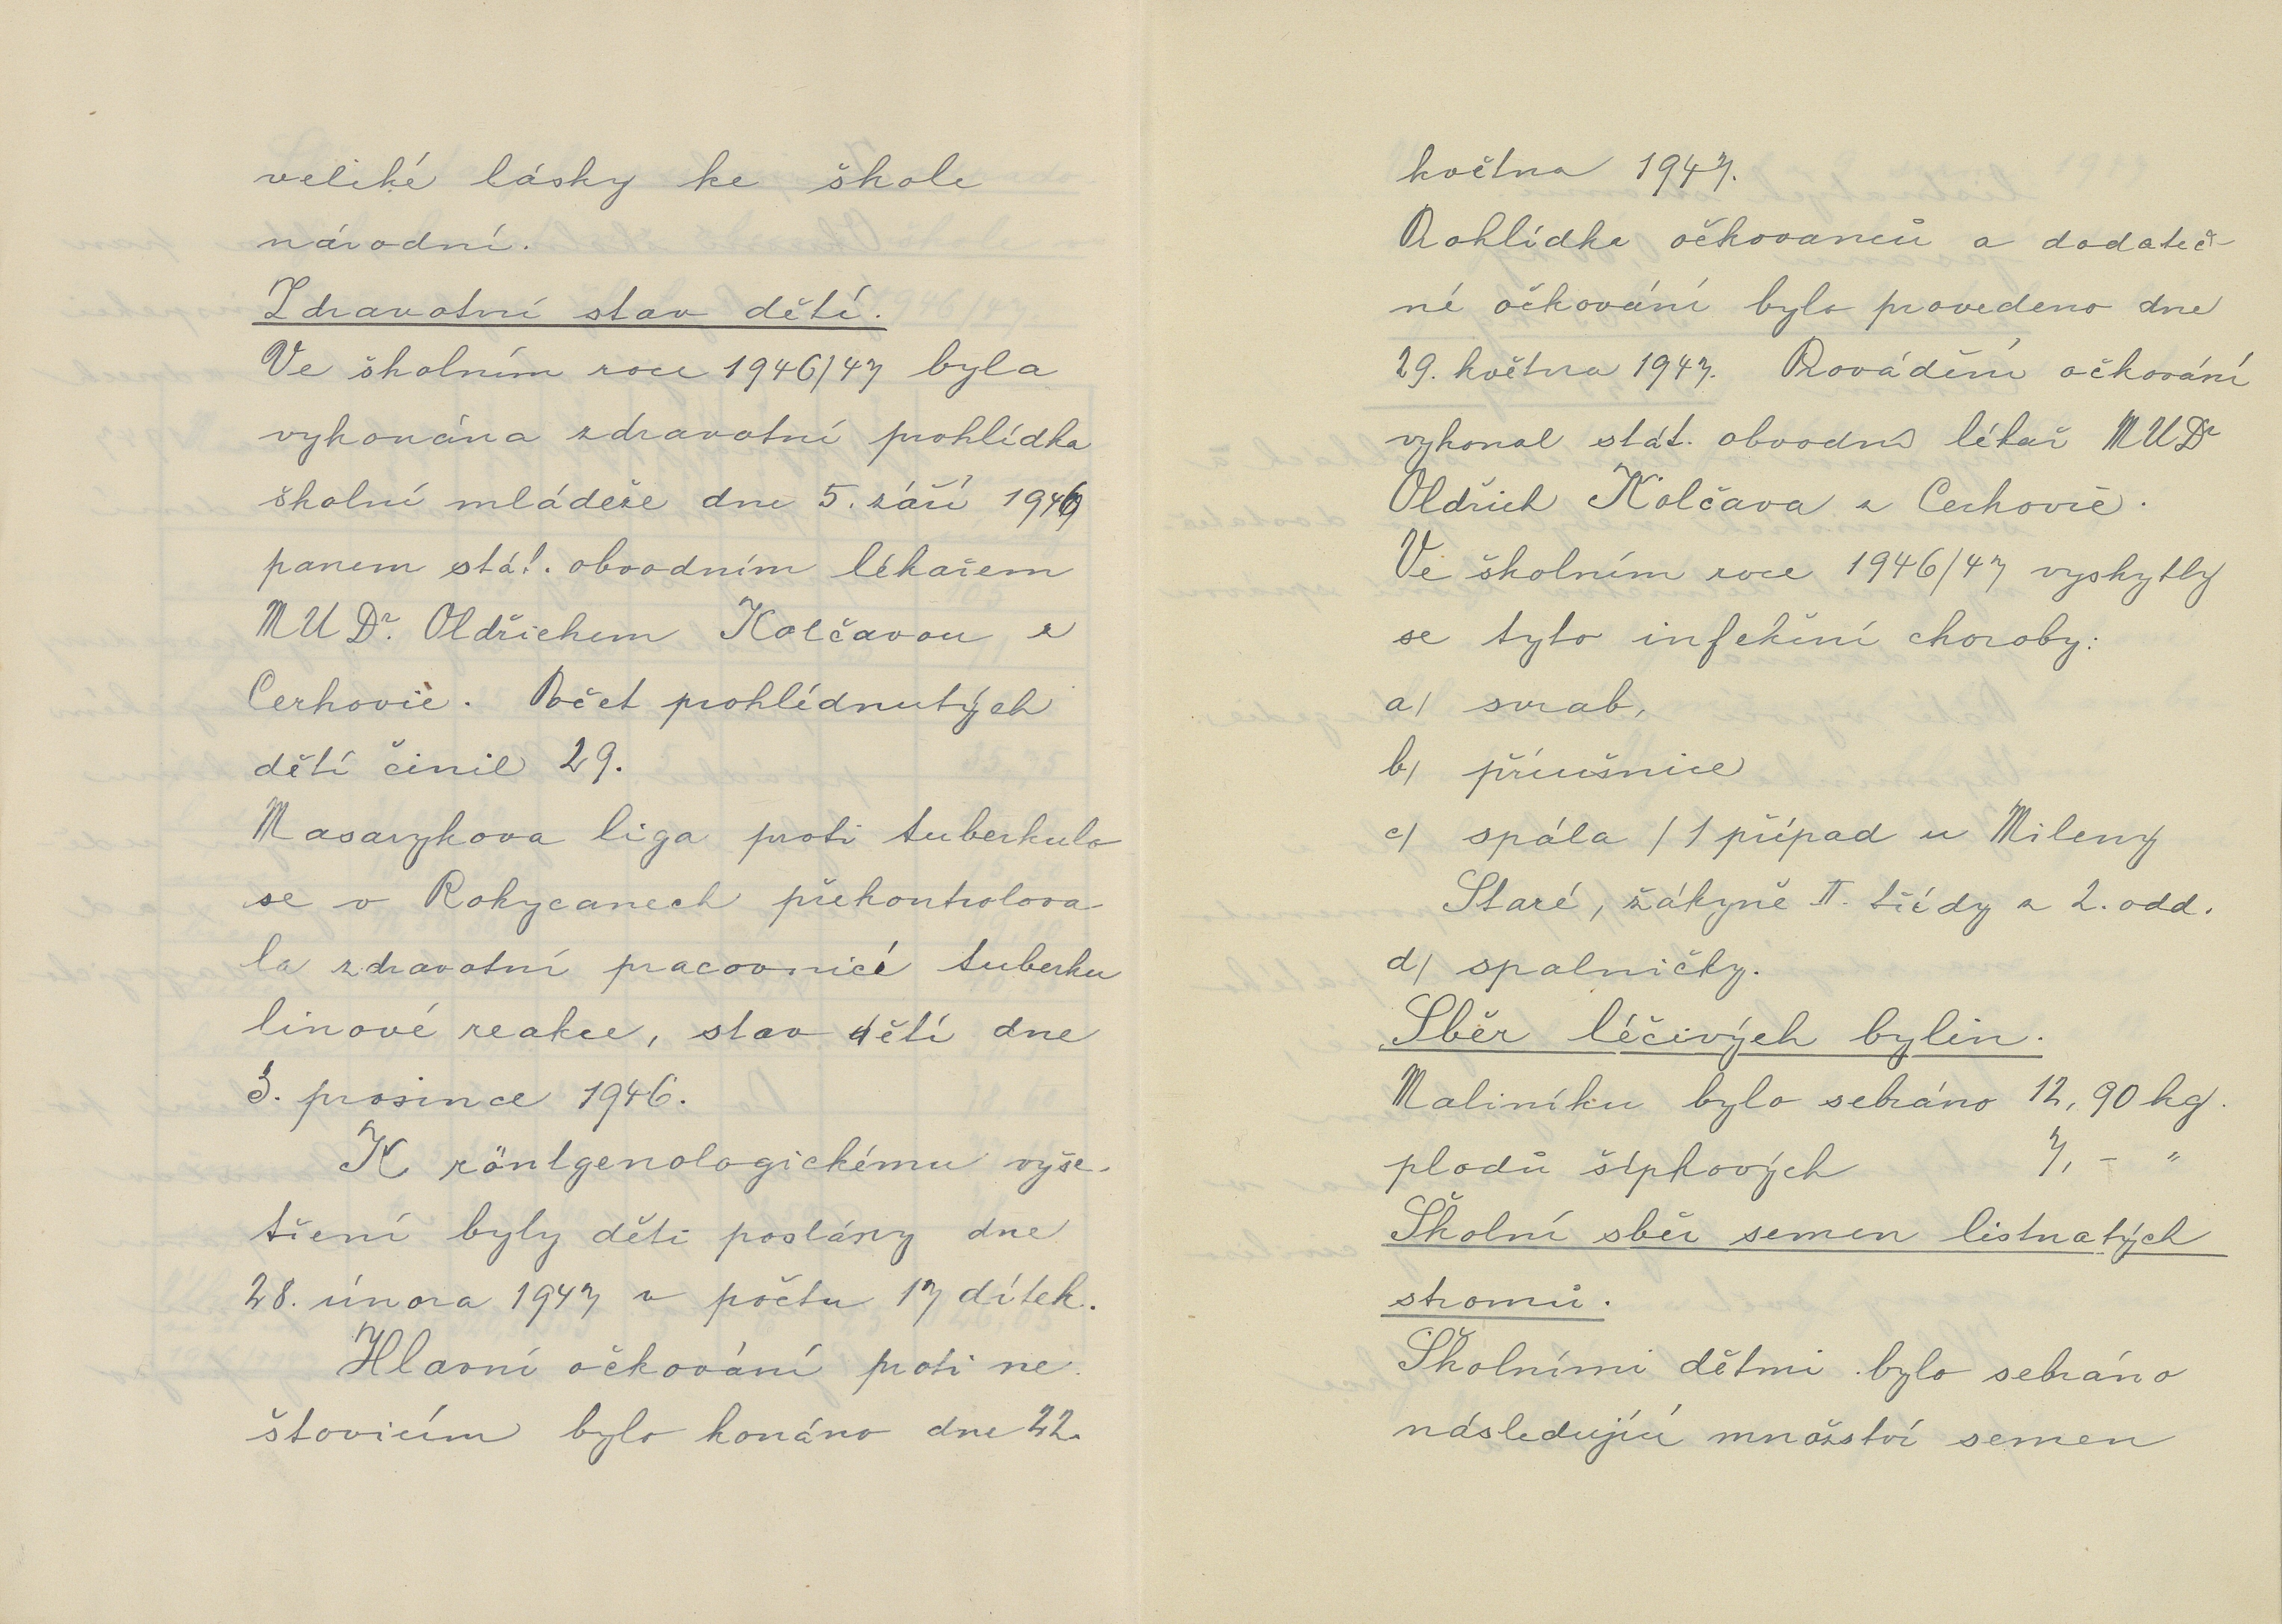 veliké lásky ke škole
národní.
Zdravotní stav dětí.
Ve školním roce 1946/47 byla
vykonána zdravotní prohlídka
školní mládeže dne 5. září 1946
panem stát. obvodním lékařem
MUDr. Oldřichem Kolčavou z
Cerhovic. Počet prohlédnutých
dětí činil 29.
Masarykova liga proti tuberkulo
se v Rokycanech překontrolova
la zdravotní pracovnicí tuberku
linové reakce, stav dětí dne
3. prosince 1946.
K röntgenologickému vyše-
tření byly děti poslány dne
28. února 1947 v počtu 17 dítek.
Hlavní očkování proti ne
štovicím bylo konáno dne 22.
května 1947.
Prohlídka očkovanců a dodateč-
né očkování bylo provedeno dne
29. května 1947. Provádění očkování
vykonal stát. obvodní lékař MUDr
Oldřich Kolčava z Cerhovic.
Ve školním roce 1946/47 vyskytly
se tyto infekční choroby:
a) svrab,
b) příušnice
c) spála /1 případ u Mileny
Staré, žákyně II. třídy z 2. odd.
d) spalničky.
Sběr léčivých bylin.
Maliníku bylo sebráno 12,90 kg.
plodů šípkových 7,- "
Školní sběr semen listnatých
stromů.
Školními dětmi bylo sebráno
následující množství semen